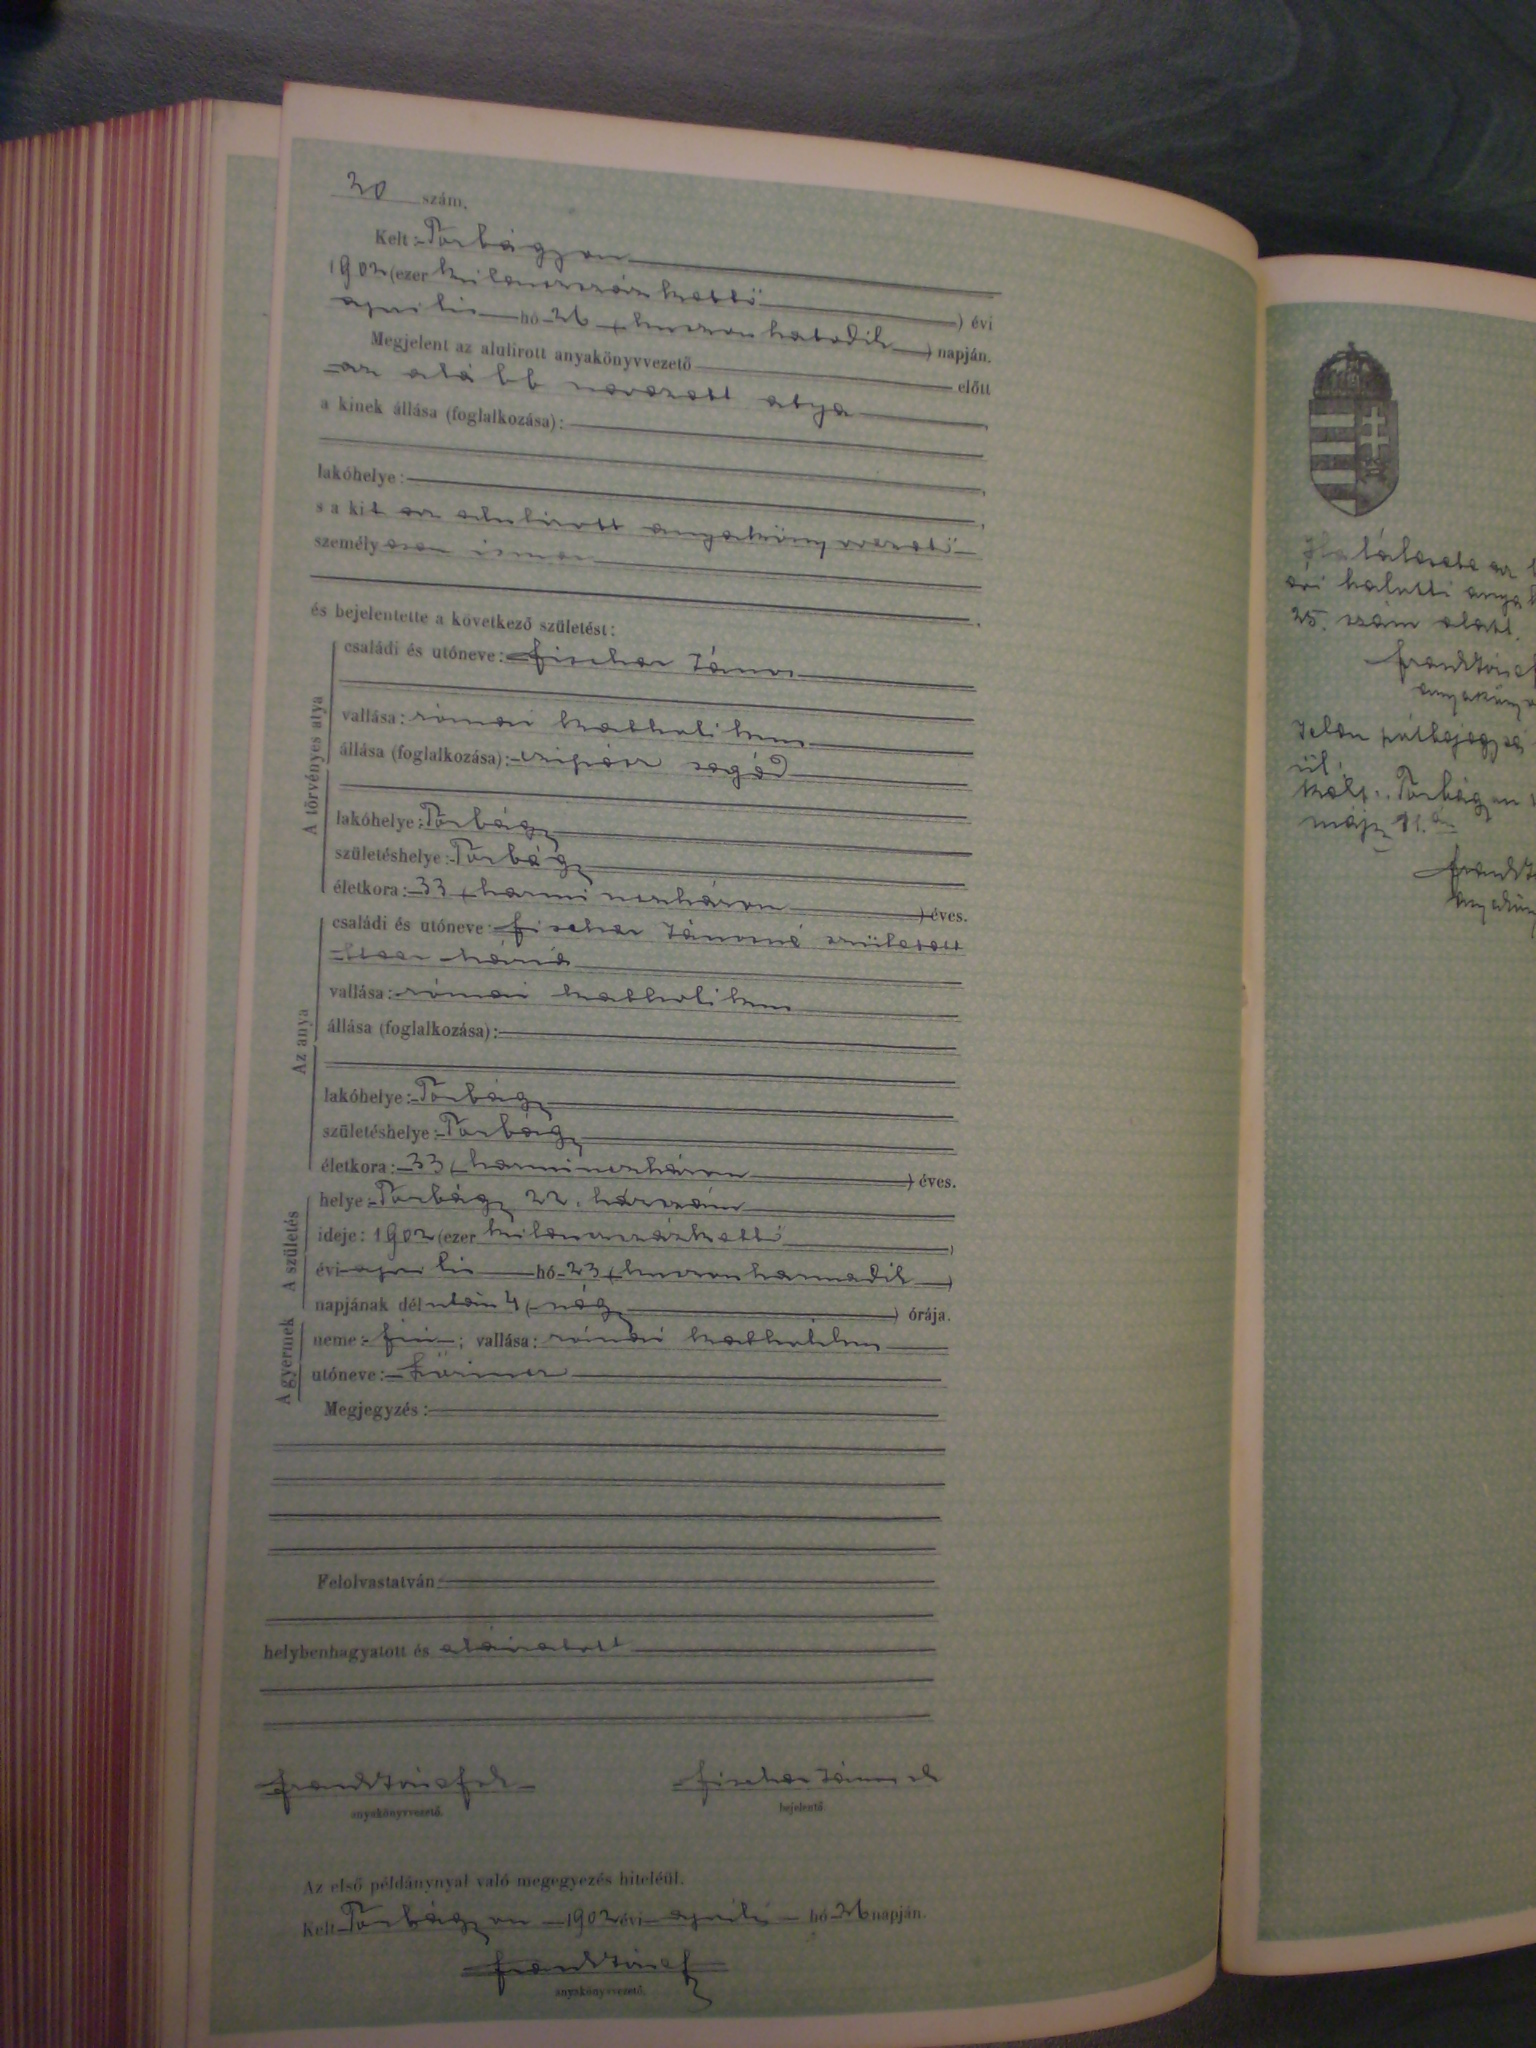 20 szám.
Kelt: Torbágyon
1902 (ezer kilenczszázkettő) évi
április hó 26 (huszonhatodik) napján.
Megjelent az alulirott anyakönyvvezető előtt
az alább nevezett atya,
a kinek állása (foglalkozása):
lakóhelye:
s a kit az alulirott anyakönyvvezető
személyesen ismer
és bejelentette a következő születést:
A törvényes atya
családi és utóneve: Fischer János
vallása: római katholikus
állása (foglalkozása): segéd
lakóhelye: Torbágy
születéshelye: Torbágy
életkora: 33 (harminczhárom) éves.
Az anya
családi és utóneve: Fischer Jánosné született
Mária
vallása: római katholikus
állása (foglalkozása):
lakóhelye: Torbágy
születéshelye: Torbágy
életkora: 33 (harminczhárom) éves.
A születés
helye: Torbágy 22. házszám
ideje: 1902 (ezer kilenczszázkettő)
évi április hó 23 (huszonharmadik)
napjának délután 4 (négy) órája.
A gyermek
neme: fiú; vallása: római katholikus
utóneve:
Megjegyzés:
Felolvastatván,
helybenhagyatott és aláiratott
Frank József sk
Fischer János sk
anyakönyvvezető.
bejelentő.
Az első példánynyal való megegyezés hiteléül.
Kelt Torbágyon 1902 évi április hó 26 napján.
Frank József
anyakönyvvezető.
Halálesete az
évi halotti anyak
25. szám alatt.
Frank József
anyakönyv
Jelen
ül.
Kelt: Torbágyon 1
máj 11.én
Frank J
anyakönyv